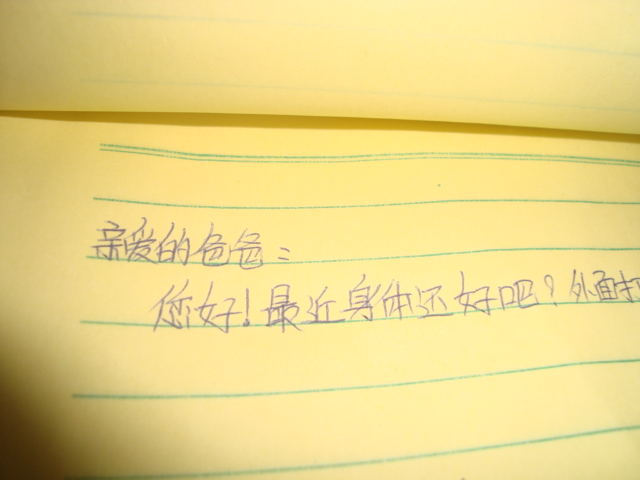 亲爱的爸爸：
您好！最近身体还好吧？外面